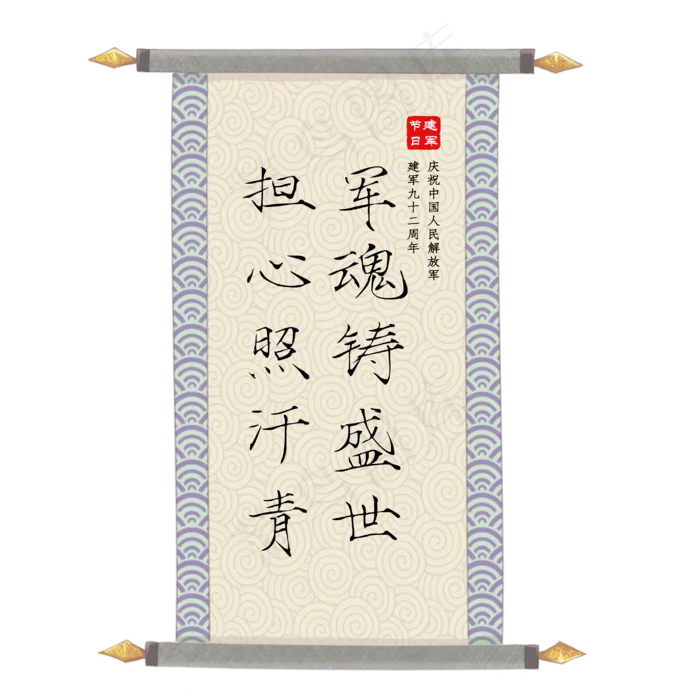 建军
节日
庆祝中国人民解放军
建军九十二周年
军魂铸盛世
担心照汗青